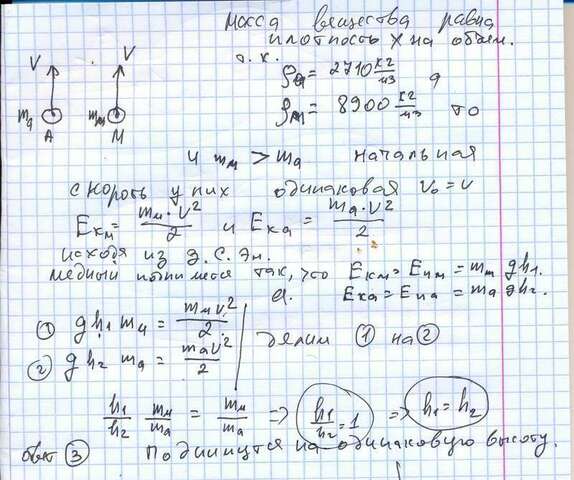 масса вещества равна
плотность х на объем.
т.к.
V V
ρa = 2710 кг/м3 а
mа mм
ρм = 8900 кг/м3 то
А М
и mм > mа начальная
скорость у них одинаковая v₀ = v
Eкм = mм·v²/2 и Eка = mа·v²/2
исходя из З.С.Эн.
медный Eкм = Eпм = mм gh₁.
а. Eка = Eпа = mа gh₂.
① gh₁ mм = mмv²/2
② gh₂ mа = mаv²/2 делим ① на ②
h₁/h₂ mм/mа = mм/mа => h₁/h₂ = 1 => h₁ = h₂
ответ ③ Поднимутся на одинаковую высоту.